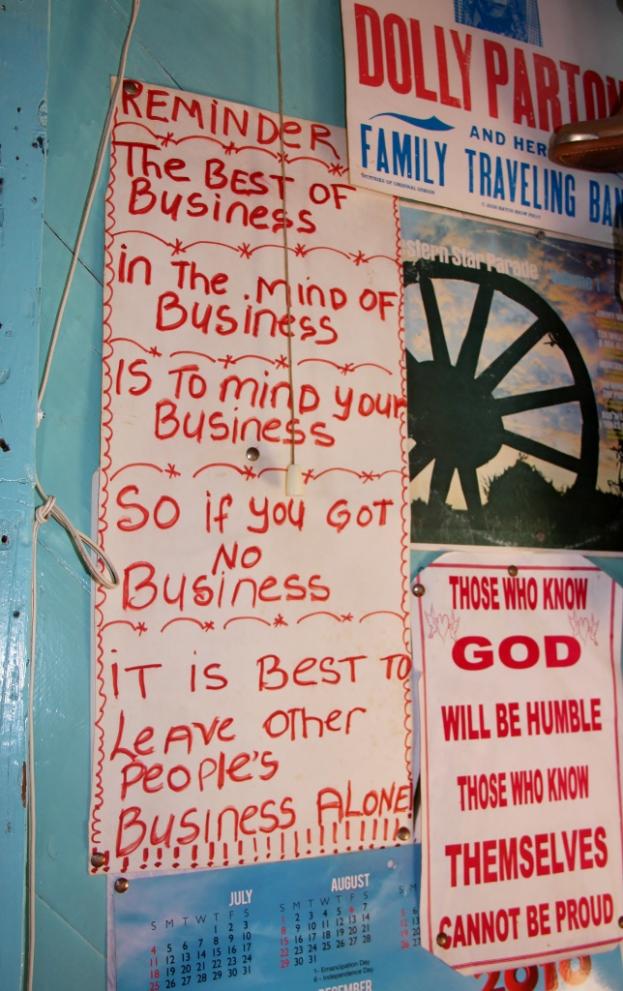 REMINDER
The BEST OF
Business
in The MinD OF
Business
IS TO minD your
Business
SO if you GOT
NO
Business
iT is BesT TO
Leave OTher
People's
Business ALONE
DOLLY PARTON
AND HER
FAMILY TRAVELING BAN
stern Star Parade
THOSE WHO KNOW
GOD
WILL BE HUMBLE
THOSE WHO KNOW
THEMSELVES
CANNOT BE PROUD
JULY
S M T W T F S
1 2 3
4 5 6 7 8 9 10
11 12 13 14 15 16 17
18 19 20 21 22 23 24
25 26 27 28 29 30 31
AUGUST
S M T W T F S
1 2 3 4 5 6 7
8 9 10 11 12 13 14
15 16 17 18 19 20 21
22 23 24 25 26 27 28
29 30 31
1- Emancipation Day
6 - Independence Day
DECEMBER
5
12
19
26
2010